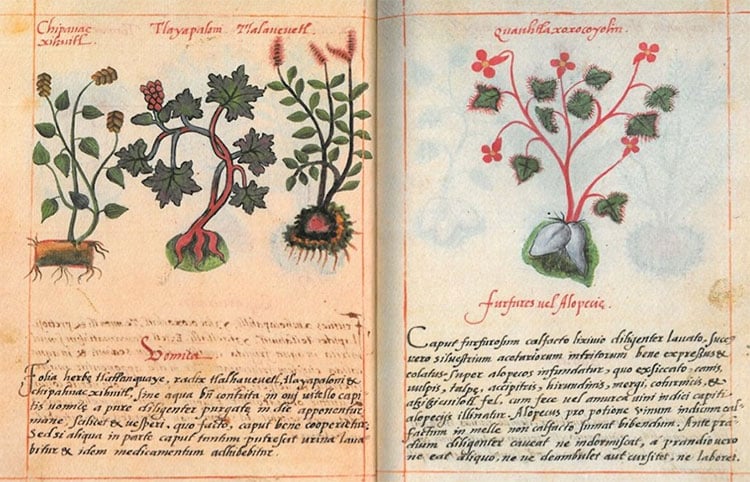 Chipauac
xihuitl.
Tlayapaloni
Tlalaueuetl.
Vomica
Folia herbe tlatlanquaye, radix tlalhaueuetl, tlayapaloni &
chipahuacxihuitl, sine aqua bñ contrita in oui vitello capi
tis vomice a pure diligenter purgate in die apponentur
mane, scilicet & uesperi, quo facto, caput bene cooperietur.
Sed si aliqua in parte caput tantum putrescit urina laua
bitur & idem medicamentum adhibebitur.
Quauhtlaxoxocoyolin.
furfures uel Alopecie.
Caput furfurosum calfacto lixiuio diligenter lauato, succ9
uero siluestrium acetariorum intritorum bene expressus &
colatus super alopecos infundatur, quo exsiccato, canis,
uulpis, talpe, accipitris, hirundinis, mergi, coturnicis, &
atzitzicuilotl fel, cum fece uel amurca uini indici capiti
alopecie illinatur. Alopecus pro potione uinum indicum cal
factum in melle non calfacto sumat bibendum. Ante pran
dium diligenter caueat ne indormiscat, a prandio uero
ne eat aliquo, ne ue deambulet aut cursitet, ne laboret.